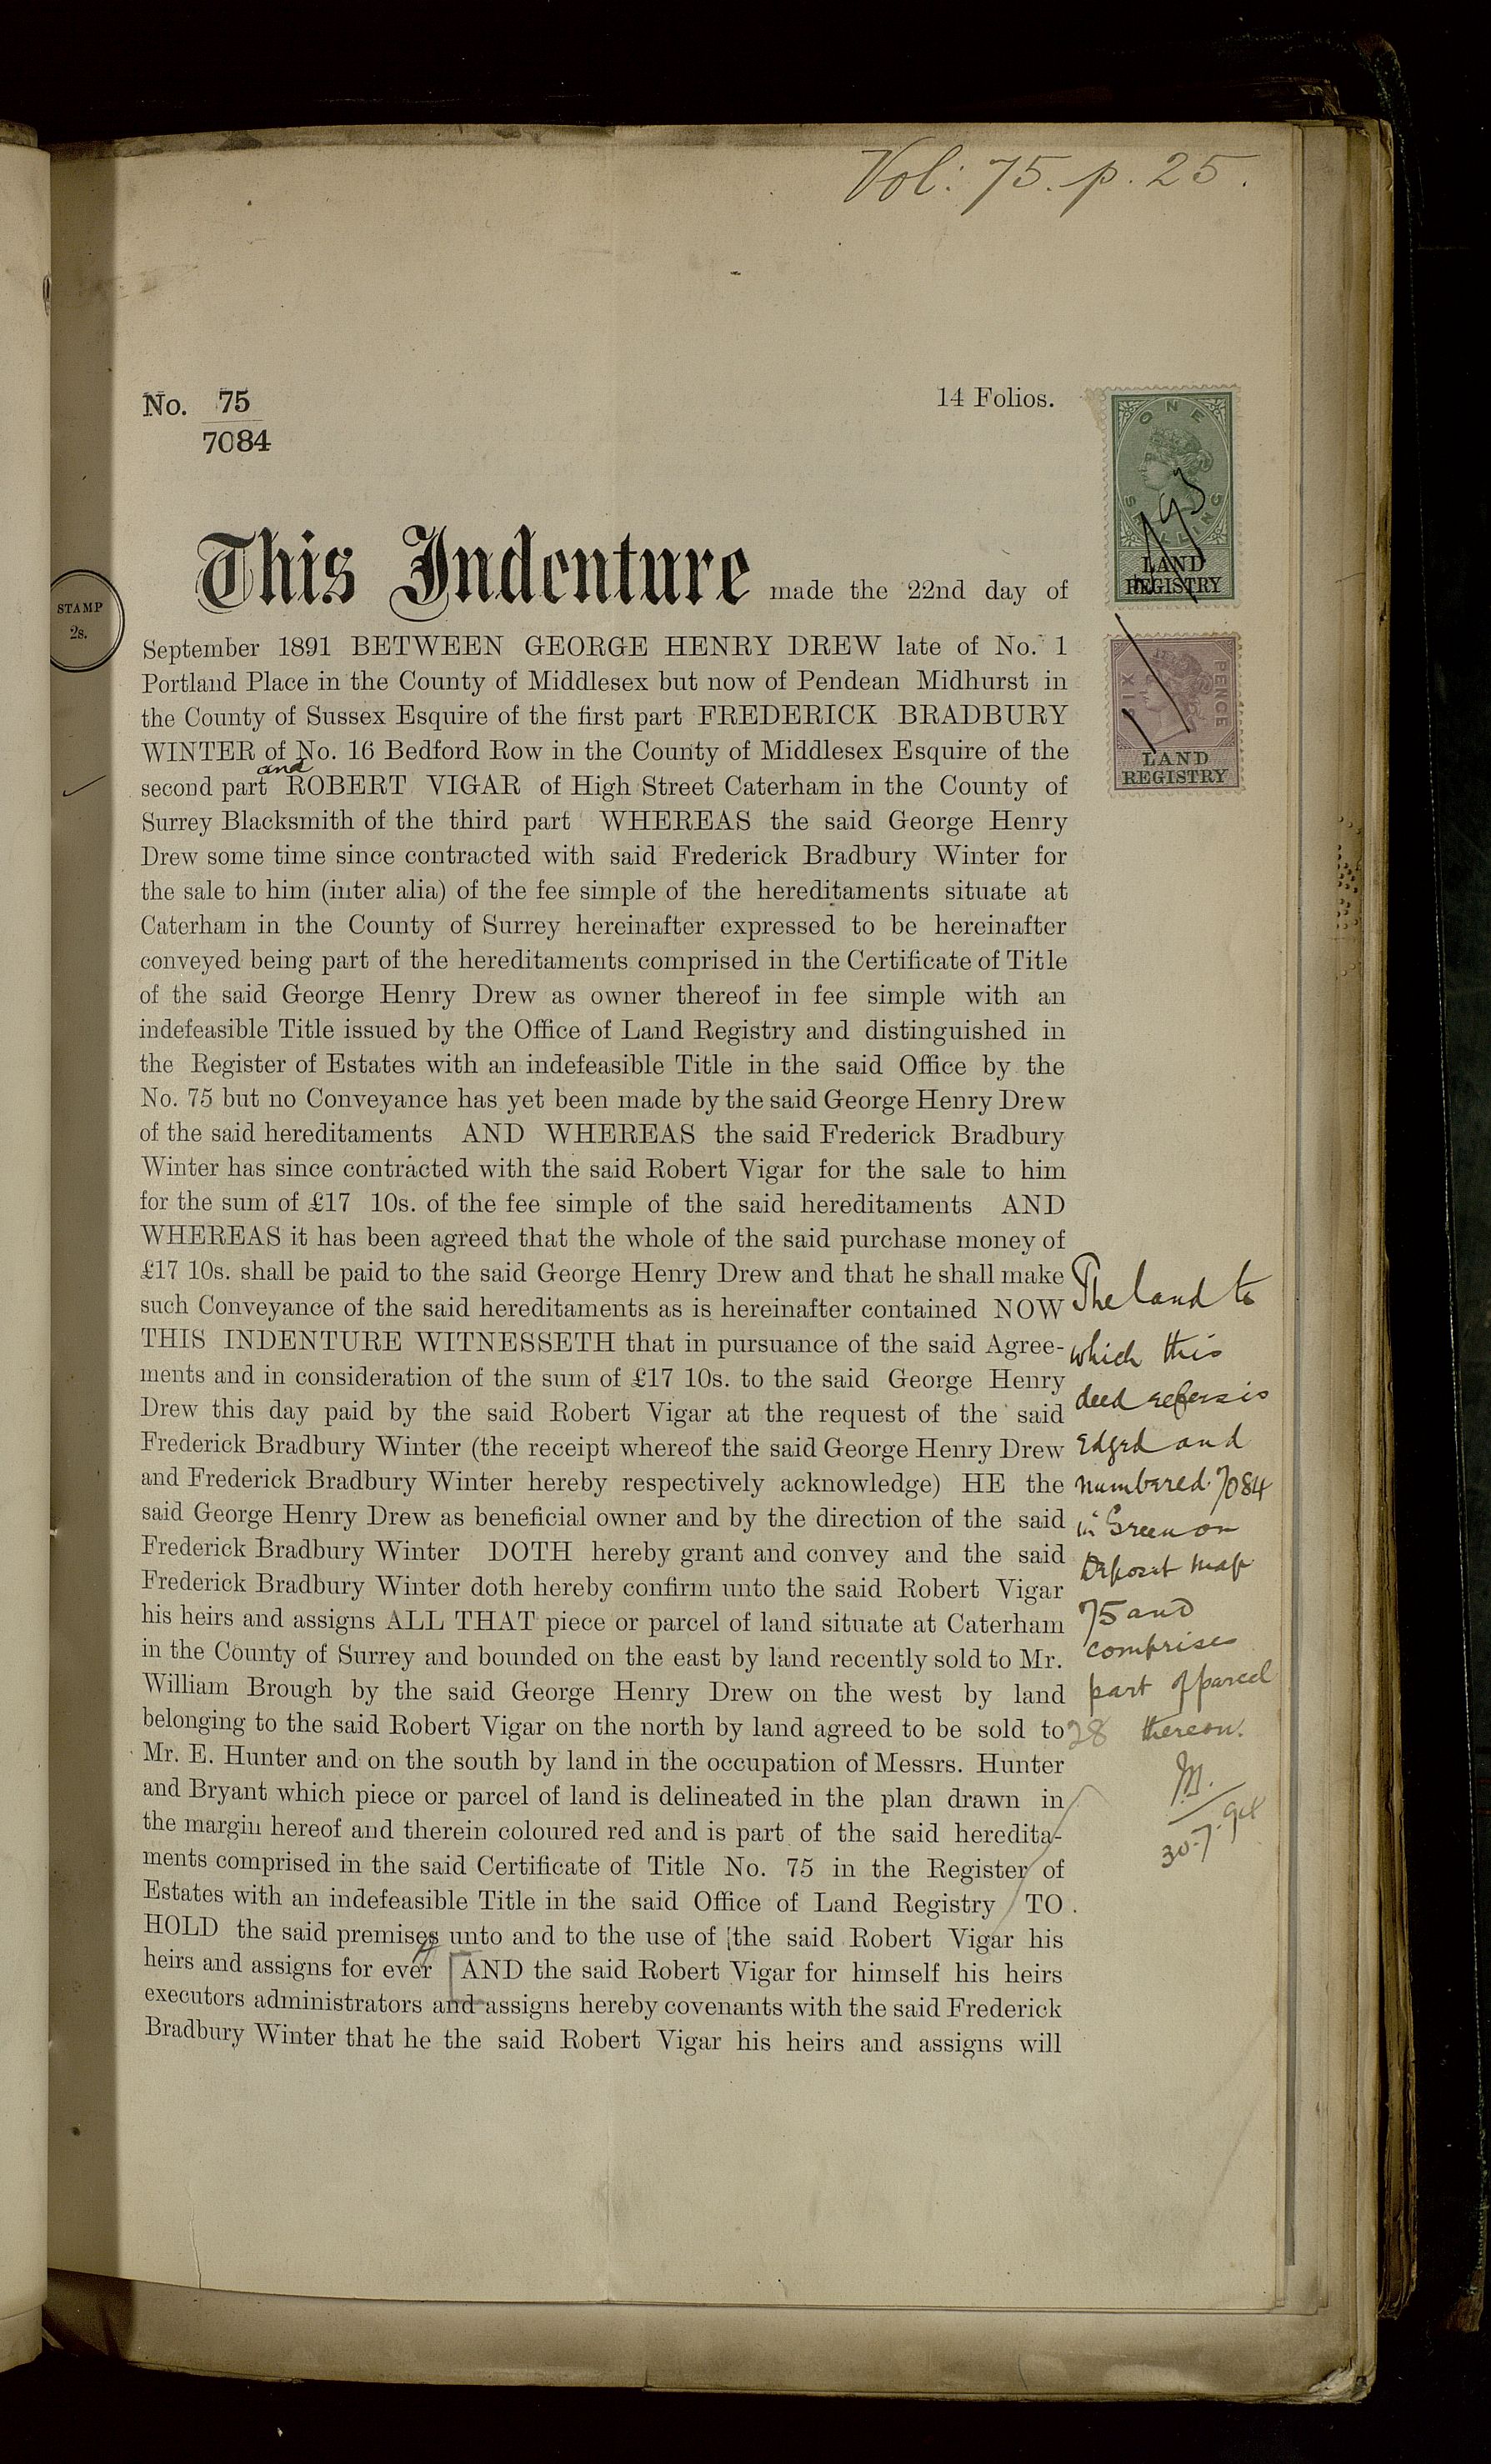 Vol: 75. p. 25.
No. 75
7084
14 Folios.
ONE
SHILLING
LAND
REGISTRY
SIX
PENCE
LAND
REGISTRY
STAMP
2s.
This Indenture made the 22nd day of
September 1891 BETWEEN GEORGE HENRY DREW late of No. 1
Portland Place in the County of Middlesex but now of Pendean Midhurst in
the County of Sussex Esquire of the first part FREDERICK BRADBURY
WINTER of No. 16 Bedford Row in the County of Middlesex Esquire of the
second part and ROBERT VIGAR of High Street Caterham in the County of
Surrey Blacksmith of the third part WHEREAS the said George Henry
Drew some time since contracted with said Frederick Bradbury Winter for
the sale to him (inter alia) of the fee simple of the hereditaments situate at
Caterham in the County of Surrey hereinafter expressed to be hereinafter
conveyed being part of the hereditaments comprised in the Certificate of Title
of the said George Henry Drew as owner thereof in fee simple with an
indefeasible Title issued by the Office of Land Registry and distinguished in
the Register of Estates with an indefeasible Title in the said Office by the
No. 75 but no Conveyance has yet been made by the said George Henry Drew
of the said hereditaments AND WHEREAS the said Frederick Bradbury
Winter has since contracted with the said Robert Vigar for the sale to him
for the sum of £17 10s. of the fee simple of the said hereditaments AND
WHEREAS it has been agreed that the whole of the said purchase money of
£17 10s. shall be paid to the said George Henry Drew and that he shall make
such Conveyance of the said hereditaments as is hereinafter contained NOW
THIS INDENTURE WITNESSETH that in pursuance of the said Agree-
ments and in consideration of the sum of £17 10s. to the said George Henry
Drew this day paid by the said Robert Vigar at the request of the said
Frederick Bradbury Winter (the receipt whereof the said George Henry Drew
and Frederick Bradbury Winter hereby respectively acknowledge) HE the
said George Henry Drew as beneficial owner and by the direction of the said
Frederick Bradbury Winter DOTH hereby grant and convey and the said
Frederick Bradbury Winter doth hereby confirm unto the said Robert Vigar
his heirs and assigns ALL THAT piece or parcel of land situate at Caterham
in the County of Surrey and bounded on the east by land recently sold to Mr.
William Brough by the said George Henry Drew on the west by land
belonging to the said Robert Vigar on the north by land agreed to be sold to
Mr. E. Hunter and on the south by land in the occupation of Messrs. Hunter
and Bryant which piece or parcel of land is delineated in the plan drawn in
the margin hereof and therein coloured red and is part of the said heredita-
ments comprised in the said Certificate of Title No. 75 in the Register of
Estates with an indefeasible Title in the said Office of Land Registry TO
HOLD the said premises unto and to the use of the said Robert Vigar his
heirs and assigns for ever [AND the said Robert Vigar for himself his heirs
executors administrators and assigns hereby covenants with the said Frederick
Bradbury Winter that he the said Robert Vigar his heirs and assigns will
The land to
which this
deed refers is
Edged and
numbered 7084
in Green on
Deposit map
75 and
comprises
part of parcel
28 thereon.
30.7.94